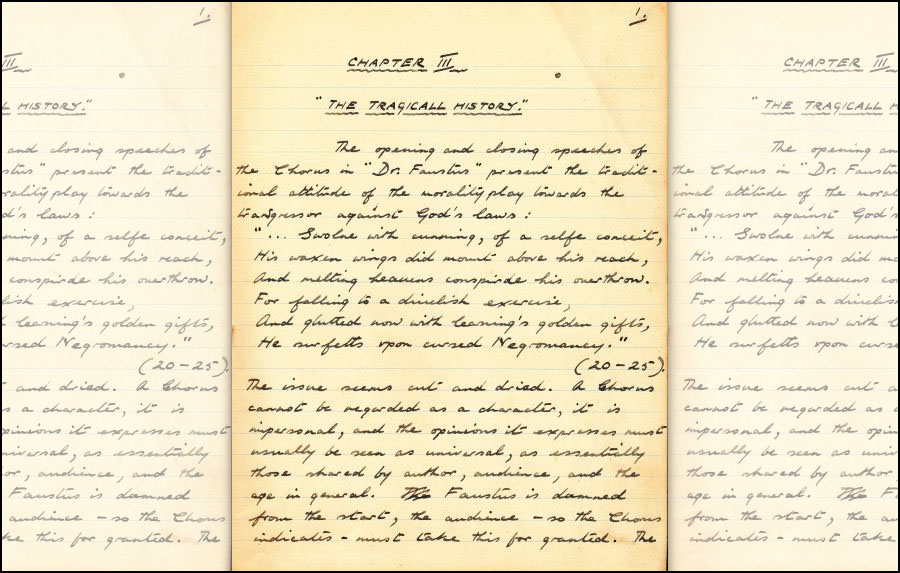 1.
CHAPTER III
"THE TRAGICALL HISTORY."
The opening and closing speeches of
the Chorus in "Dr. Faustus" present the tradit-
ional attitude of the morality play towards the
transgressor against God's laws :
"... Swolne with cunning, of a selfe conceit,
His waxen wings did mount above his reach,
And melting heavens conspirde his overthrow.
For falling to a divelish exercise,
And glutted now with learning's golden gifts,
He surfetts vpon cursed Negromancy."
(20-25).
The issue seems cut and dried. A Chorus
cannot be regarded as a character, it is
impersonal, and the opinions it expresses must
usually be seen as universal, as essentially
those shared by author, audience, and the
age in general. The Faustus is damned
from the start, the audience - so the Chorus
indicates - must take this for granted. The